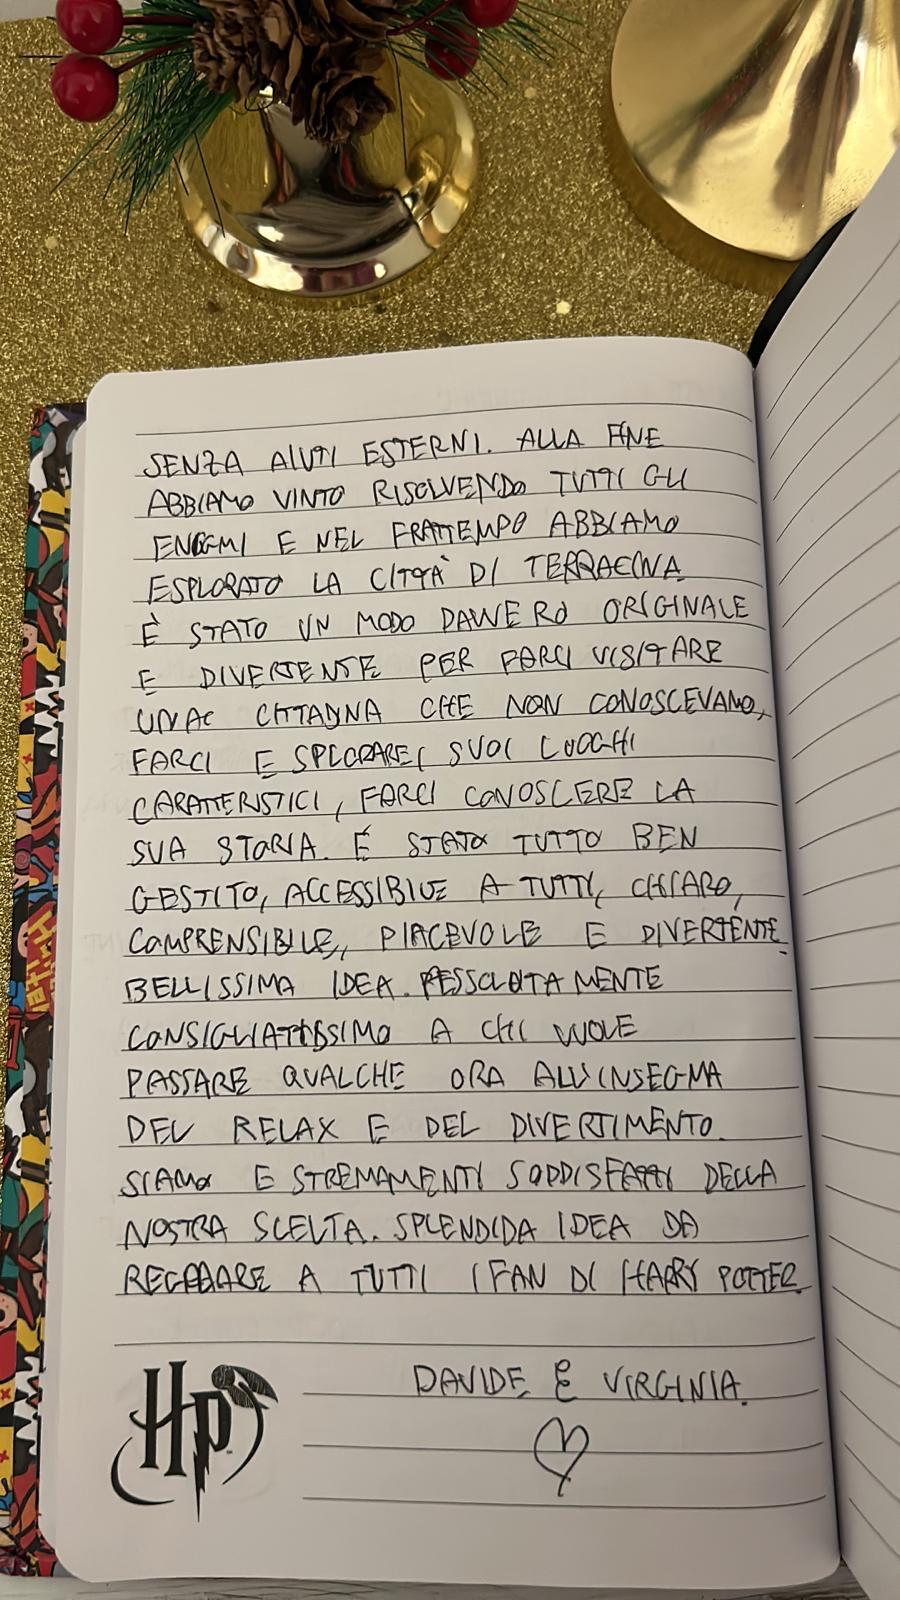 SENZA AIUTI ESTERNI. ALLA FINE
ABBIAMO VINTO RISOLVENDO TUTTI GLI
ENIGMI E NEL FRATTEMPO ABBIAMO
ESPLORATO LA CITTÀ DI TERRACINA.
È STATO UN MODO DAVVERO ORIGINALE
E DIVERTENTE PER FARCI VISITARE
UNA CITTADINA CHE NON CONOSCEVAMO,
FARCI ESPLORARE I SUOI LUOGHI
CARATTERISTICI, FARCI CONOSCERE LA
SUA STORIA. É STATO TUTTO BEN
GESTITO, ACCESSIBILE A TUTTI, CHIARO,
COMPRENSIBILE, PIACEVOLE E DIVERTENTE.
BELLISSIMA IDEA. ASSOLUTAMENTE
CONSIGLIATISSIMO A CHI VUOLE
PASSARE QUALCHE ORA ALL'INSEGNA
DEL RELAX E DEL DIVERTIMENTO.
SIAMO ESTREMAMENTI SODDISFATTI DELLA
NOSTRA SCELTA. SPLENDIDA IDEA DA
REGALARE A TUTTI I FAN DI HARRY POTTER.
DAVIDE E VIRGINIA.
HP